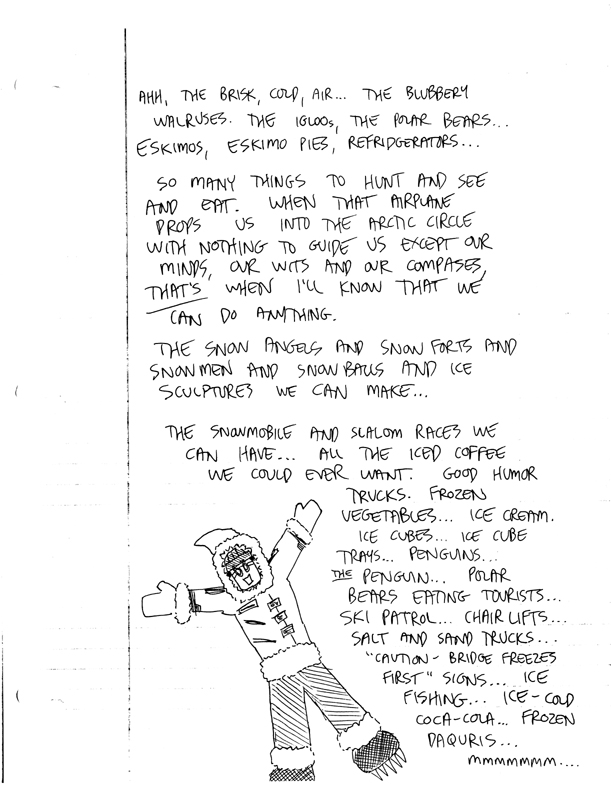 AHH, THE BRISK, COLD, AIR... THE BLUBBERY
WALRUSES. THE IGLOOS, THE POLAR BEARS...
ESKIMOS, ESKIMO PIES, REFRIDGERATORS...
SO MANY THINGS TO HUNT AND SEE
AND EAT. WHEN THAT AIRPLANE
DROPS US INTO THE ARCTIC CIRCLE
WITH NOTHING TO GUIDE US EXCEPT OUR
MINDS, OUR WITS AND OUR COMPASES,
THAT'S WHEN I'LL KNOW THAT WE
CAN DO ANYTHING.
THE SNOW ANGELS AND SNOW FORTS AND
SNOWMEN AND SNOWBALLS AND ICE
SCULPTURES WE CAN MAKE...
THE SNOWMOBILE AND SLALOM RACES WE
CAN HAVE... ALL THE ICED COFFEE
WE COULD EVER WANT. GOOD HUMOR
TRUCKS. FROZEN
VEGETABLES... ICE CREAM.
ICE CUBES... ICE CUBE
TRAYS... PENGUINS...
THE PENGUIN... POLAR
BEARS EATING TOURISTS...
SKI PATROL... CHAIR LIFTS...
SALT AND SAND TRUCKS...
"CAUTION - BRIDGE FREEZES
FIRST" SIGNS... ICE
FISHING... ICE-COLD
COCA-COLA... FROZEN
DAQURIS...
MMMMMMM....